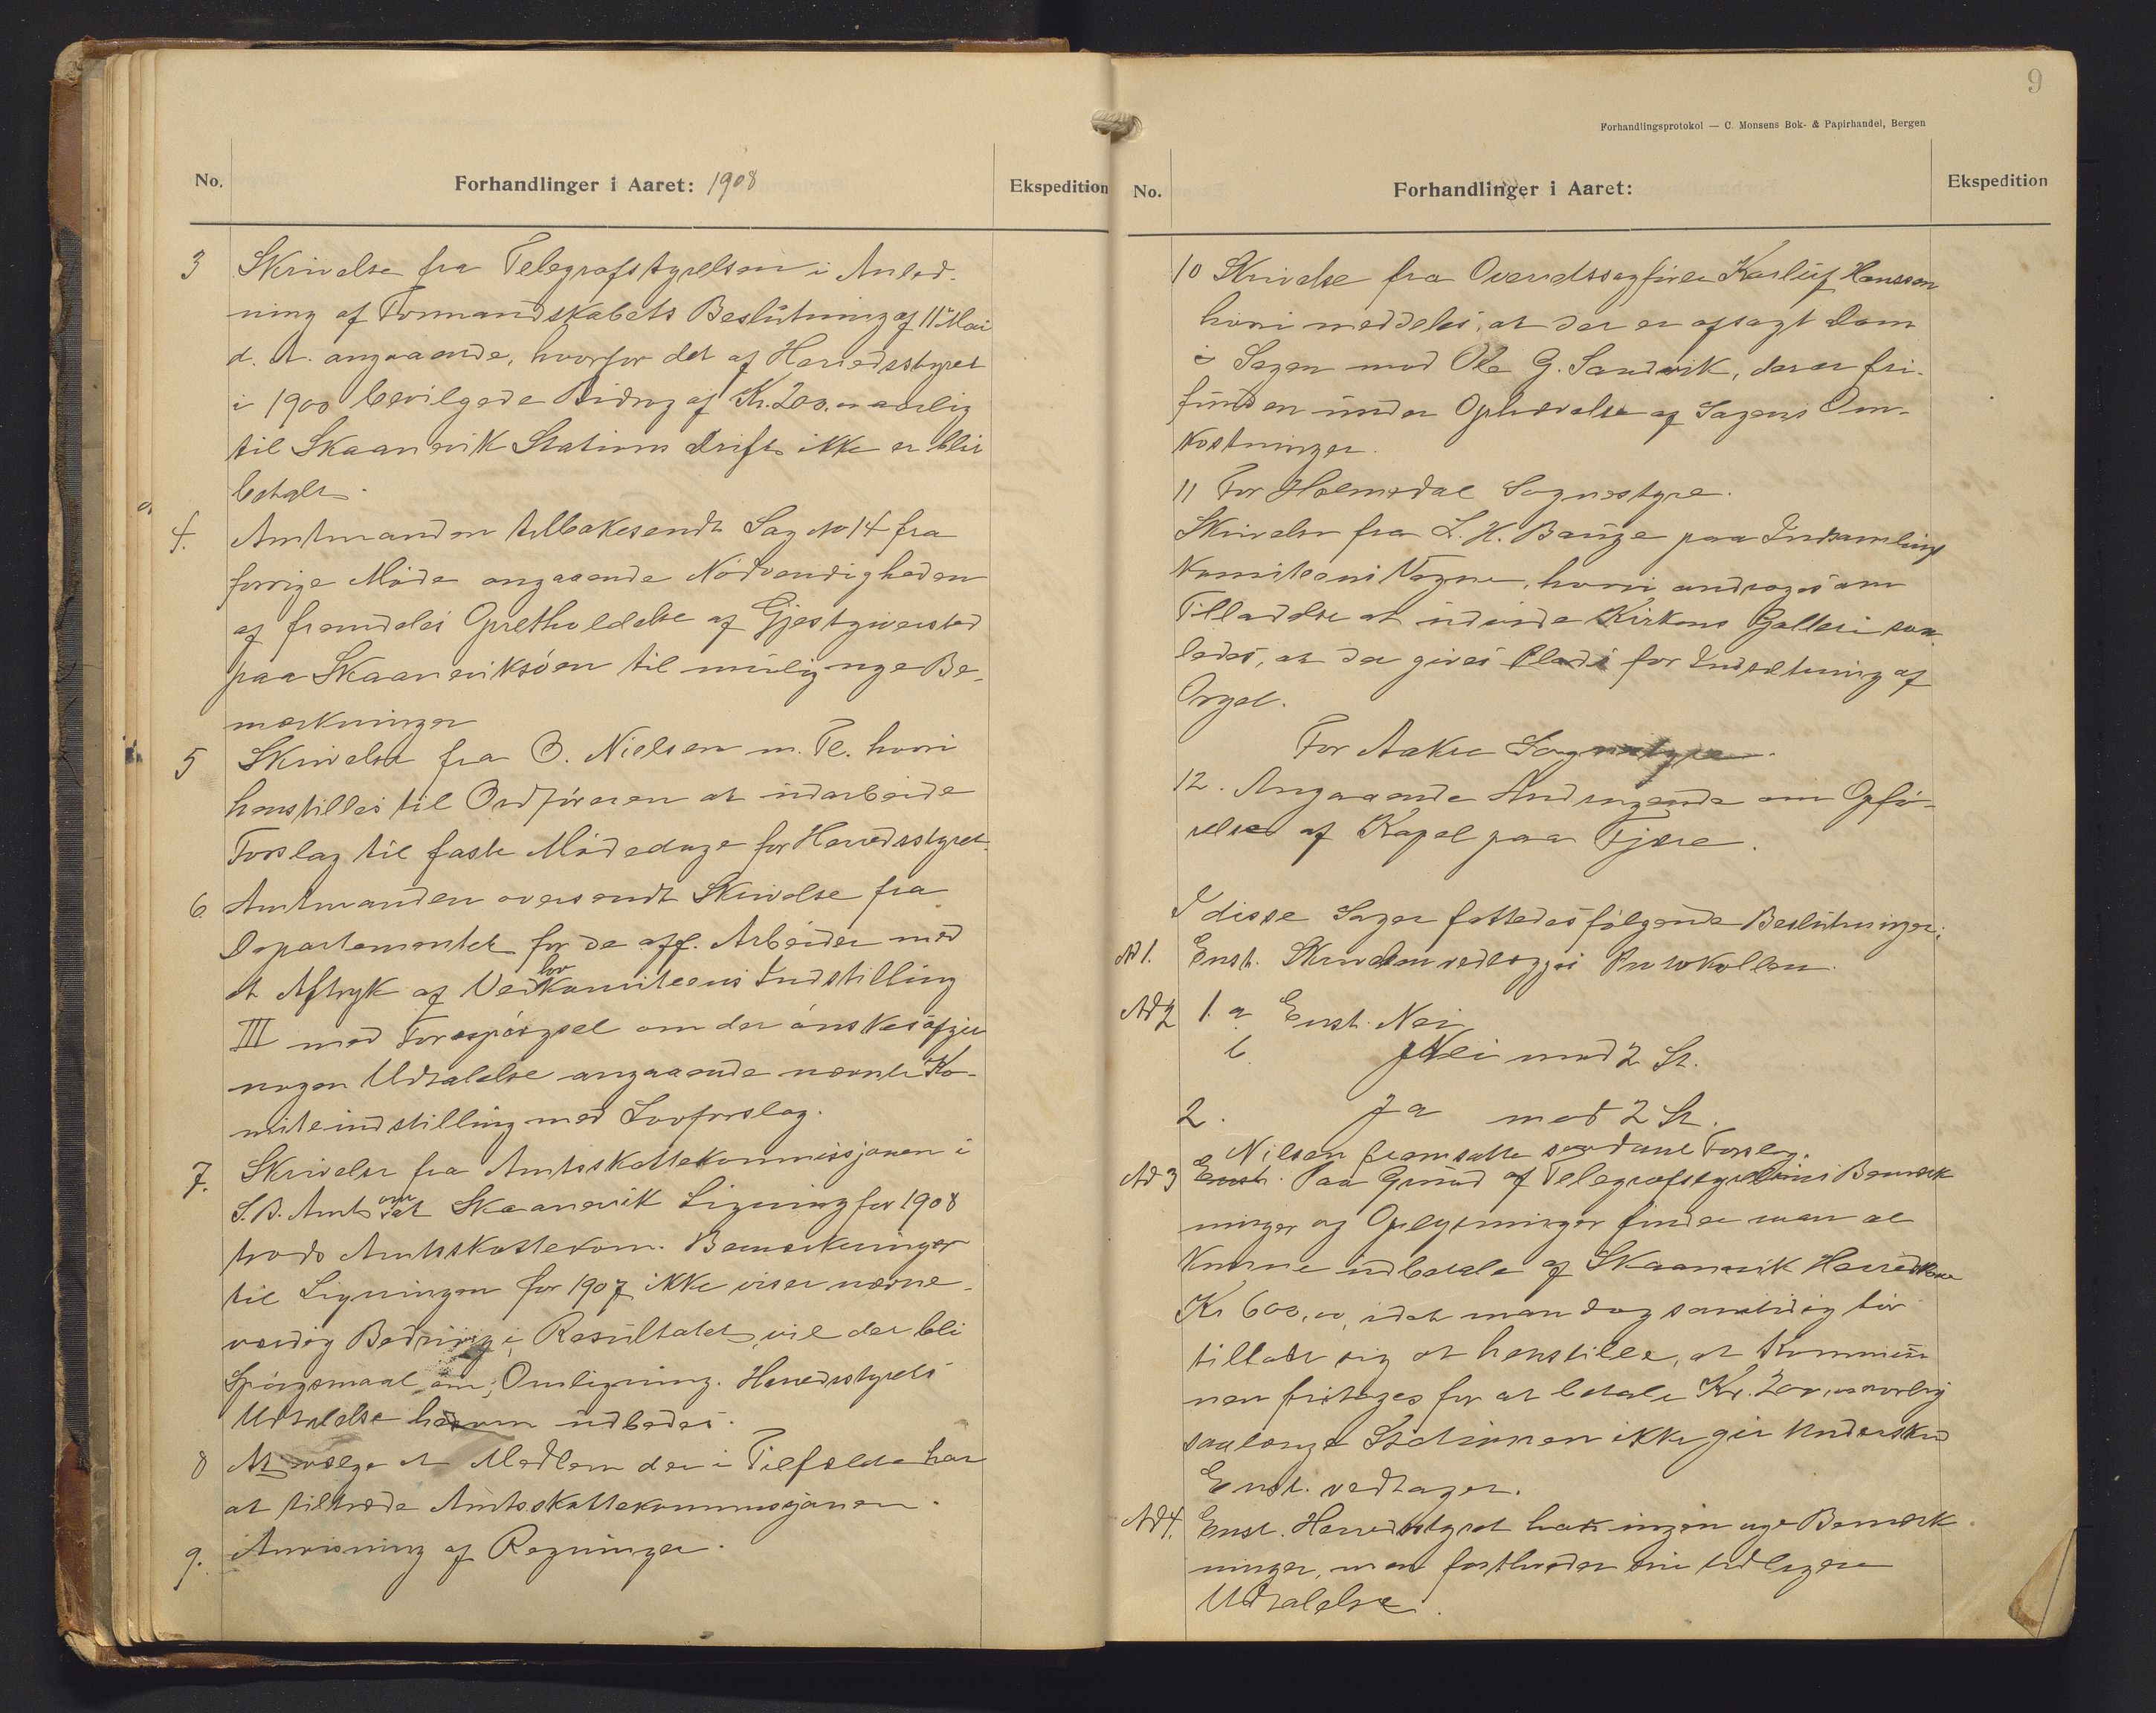 No.
Forhandlinger i Aaret: 1908
Ekspedition
3 Skrivelse fra Telegrafstyrelsen i Anled-
ning af Formandskabets Beslutning af 11te Mai
d. A. angaaende, hvorfor det af Herredsstyret
i 1900 bevilgede Bidrag af Kr. 200,00 aarlig
til Skaanevik Stations Drift ikke er blit
betalt.
4. Amtmanden tilbakesendt Sag No 14 fra
forrige Møde angaaende Nødvendigheden
af fremdeles Opretholdelse af Gjestgiversted
paa Skaaneviksøen til mulig nye Be-
mærkninger
5 Skrivelse fra O. Nielsen m. Fl. hvori
henstilles til Ordføreren at udarbeide
Forslag til faste Mødedage for Herredsstyret.
6. Amtmanden oversendt Skrivelse fra
Departementet for de off. Arbeider med
et Aftryk af Veilovkomiteens Indstilling
III med Forespørgsel om der ønskes afgit
nogen Udtalelse angaaende nævnte Ko-
miteindstilling med Lovforslag.
7. Skrivelse fra Amtsskattekommissjonen i
S. B. Amt om at Skaanevik Ligning for 1908
trods Amtsskattekom. Bemærkninger
til Ligningen for 1907 ikke viser nævne-
værdig Bedring i Resultatet, vil der bli
Spørgsmaal om Omligning. Herredsstyrets
Udtalelse herom udbedes.
8 At vælge et Medlem der i Tilfælde har
at tiltræde Amtsskattekommissjonen.
9. Anvisning af Regninger.
9
Forhandlingsprotokol — C. Monsens Bok- & Papirhandel, Bergen
No.
Forhandlinger i Aaret:
Ekspedition
10 Skrivelse fra Overretssagfører Karluf Hanssen
hvori meddeles, at der er afsagt Dom
i Sagen mod Ole G. Sandvik, der er fri-
funden under Ophævelse af Sagens Om-
kostninger.
11 For Holmedal Sognestyre.
Skrivelse fra L. H. Bauge paa Indsamlings
komiteens Vegne, hvori andrages om
Tilladelse at udvide Kirkens Galleri saa-
ledes, at der gives Plads for Indsetning af
Orgel.
For Aakre Sognestyre.
12. Angaaende Andragende om Opfø-
relse af Kapel paa Fjære.
I disse Sager fattedes følgende Beslutninger:
Ad 1. Enst. Skrivelsen vedlægges Protokollen.
Ad 2 1. a Enst. Nei
b. Nei mod 2 St.
2. Ja mod 2 St.
Nilsen fremsatte saadant Forslag.
Ad 3 Enst. Paa Grund af Telegrafstyrelsens Bemærk
ninger og Oplysninger finder man at
kunne udbetale af Skaanevik Herredskasse
Kr 600,00, idet man dog samtidig tør
tillate sig at henstille, at Kommu
nen fritages for at betale Kr. 200,00 aarlig
saalænge Stationen ikke gir Undersku
Enst. vedtaget.
Ad 4. Enst. Herredsstyret har ingen nye Bemærk
ninger, men fastholder sin tidligere
Udtalelse.